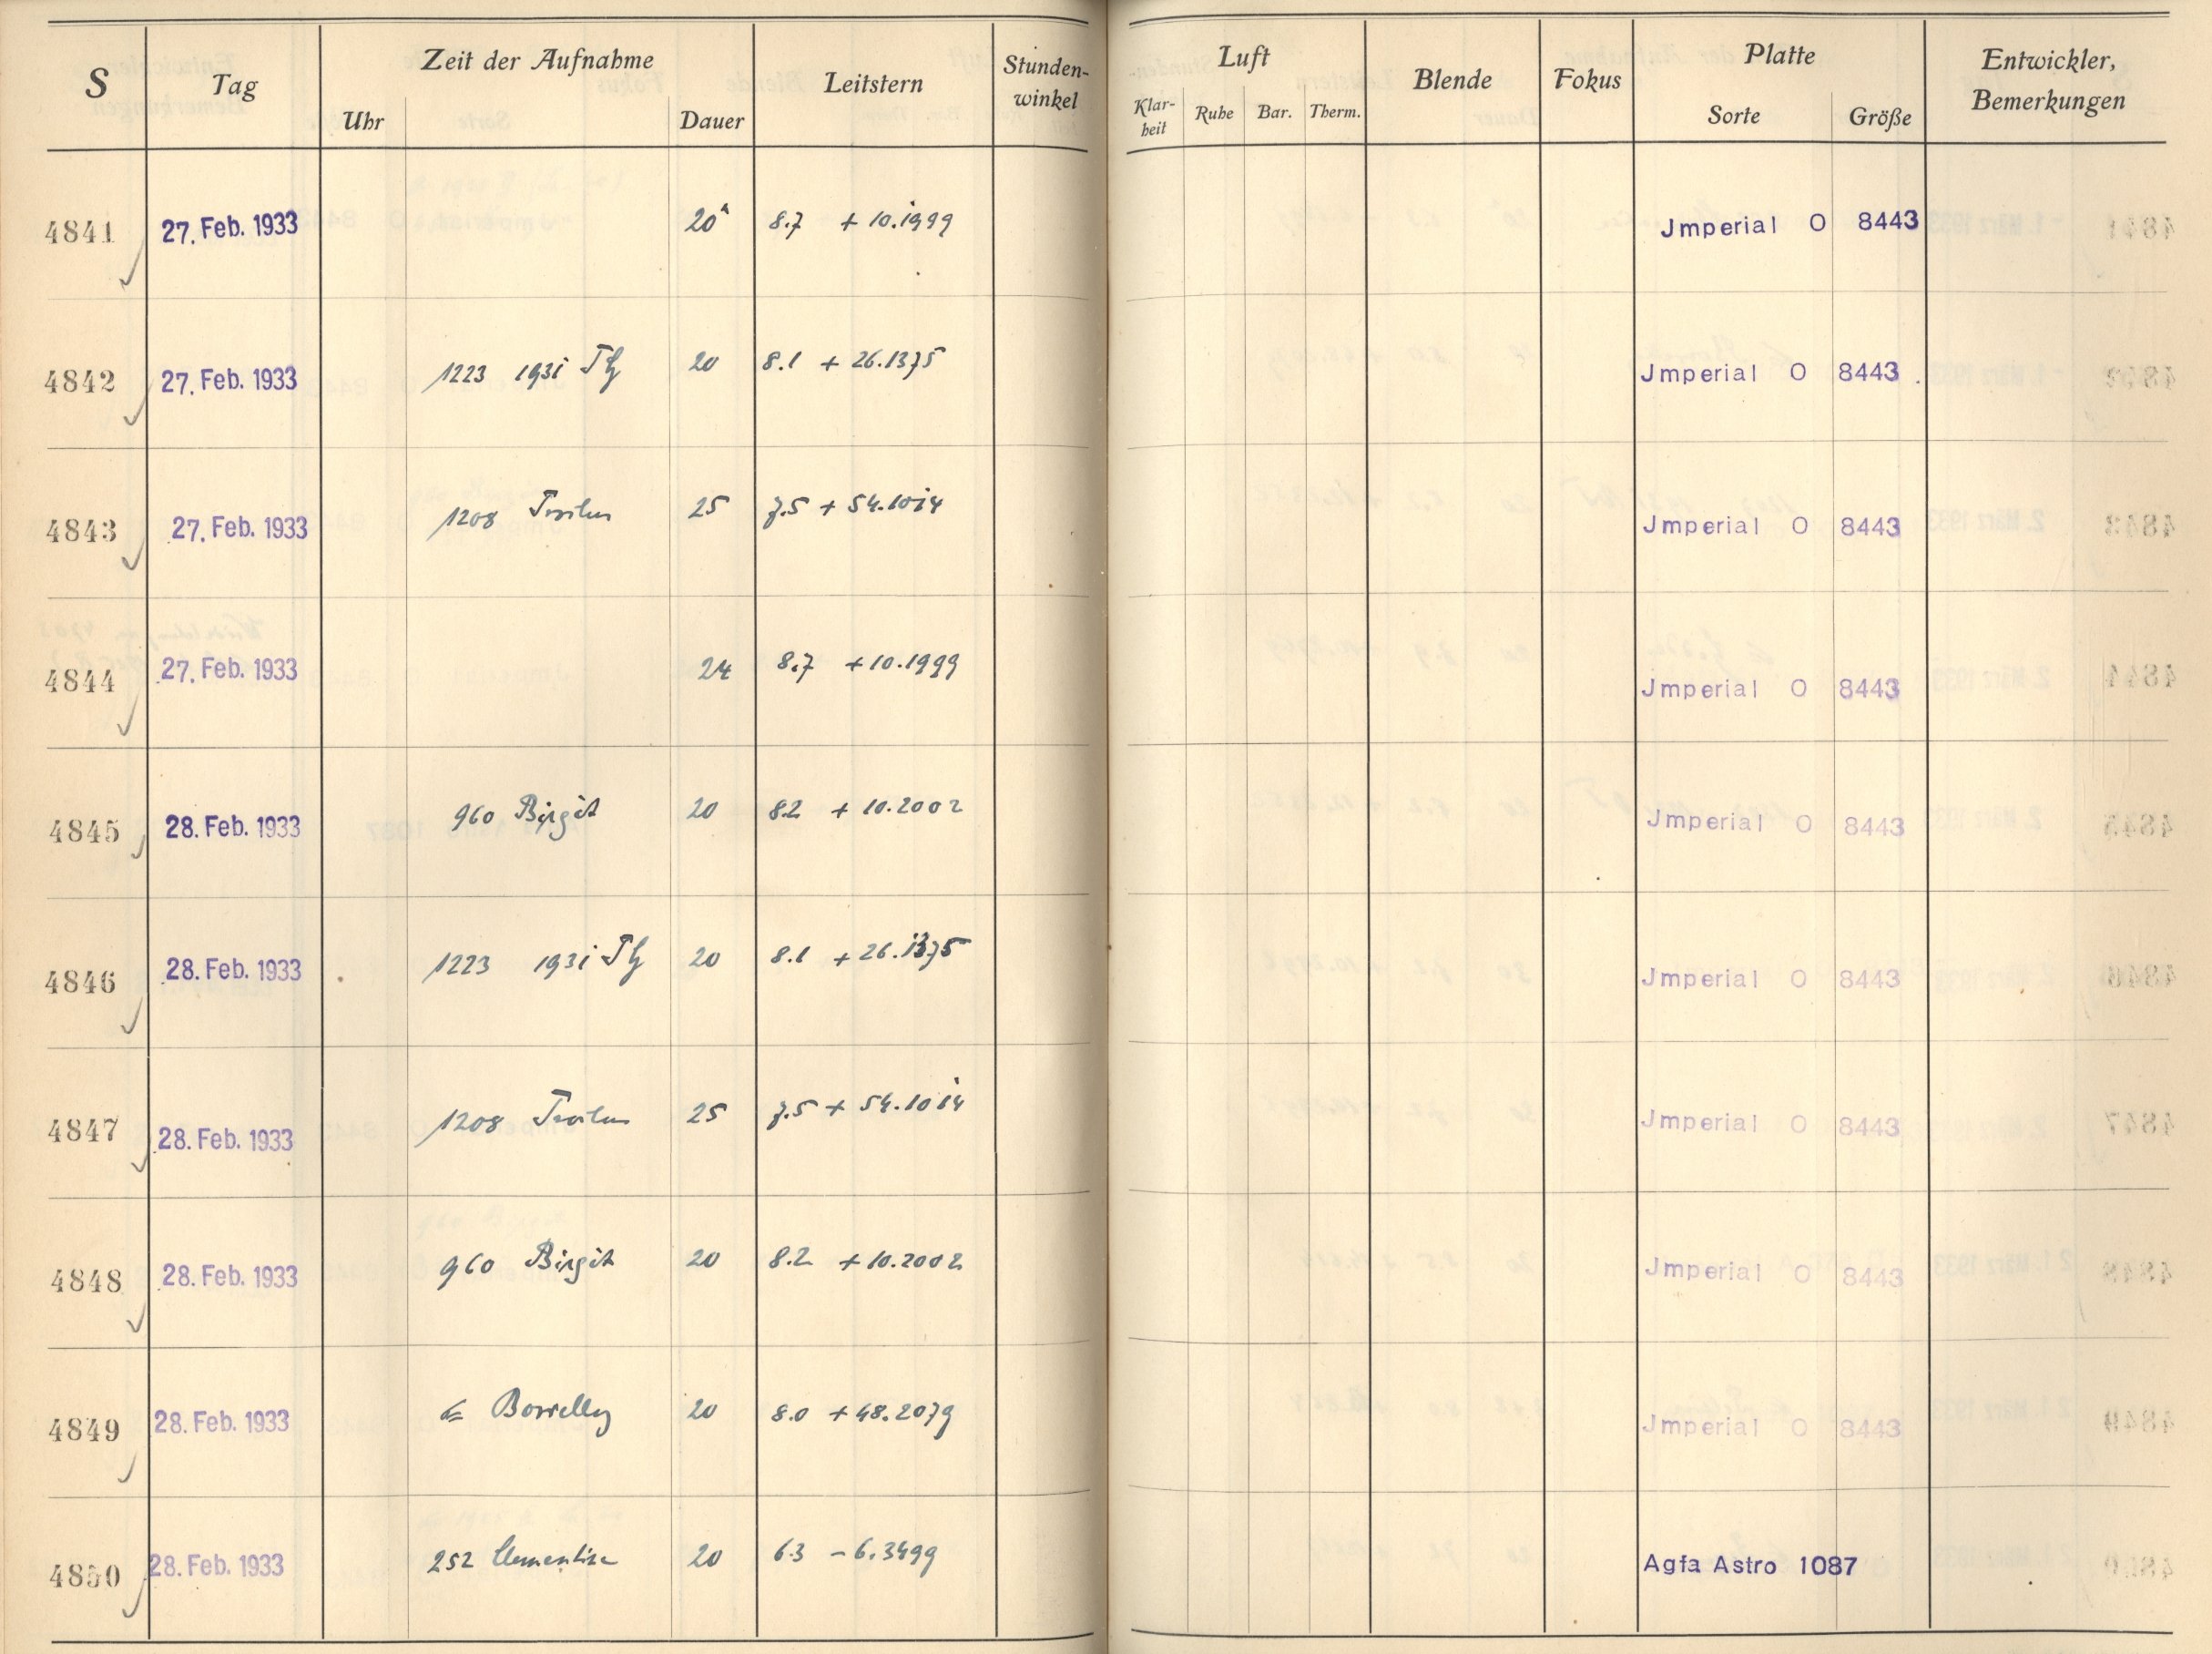 S Tag Zeit der Aufnahme Leitstern Stunden-winkel Luft Blende Fokus Platte Entwickler, Bemerkungen
Uhr Dauer Klar-heit Ruhe Bar. Therm. Sorte Größe
4841 27. Feb. 1933 20 8.7 + 10.1999 Jmperial O 8443
4842 27. Feb. 1933 1223 1931 20 8.1 + 26.1375 Jmperial O 8443
4843 27. Feb. 1933 1208 Troilus 25 7.5 + 54.1014 Jmperial O 8443
4844 27. Feb. 1933 24 8.7 + 10.1999 Jmperial O 8443
4845 28. Feb. 1933 960 Birgit 20 8.2 + 10.2002 Jmperial O 8443
4846 28. Feb. 1933 1223 1931 20 8.1 + 26.1375 Jmperial O 8443
4847 28. Feb. 1933 1208 Troilus 25 7.5 + 54.1014 Jmperial O 8443
4848 28. Feb. 1933 960 Birgit 20 8.2 + 10.2002 Jmperial O 8443
4849 28. Feb. 1933 Borrelly 20 8.0 + 48.2079 Jmperial O 8443
4850 28. Feb. 1933 252 Clementina 20 6.3 - 6.3499 Agfa Astro 1087